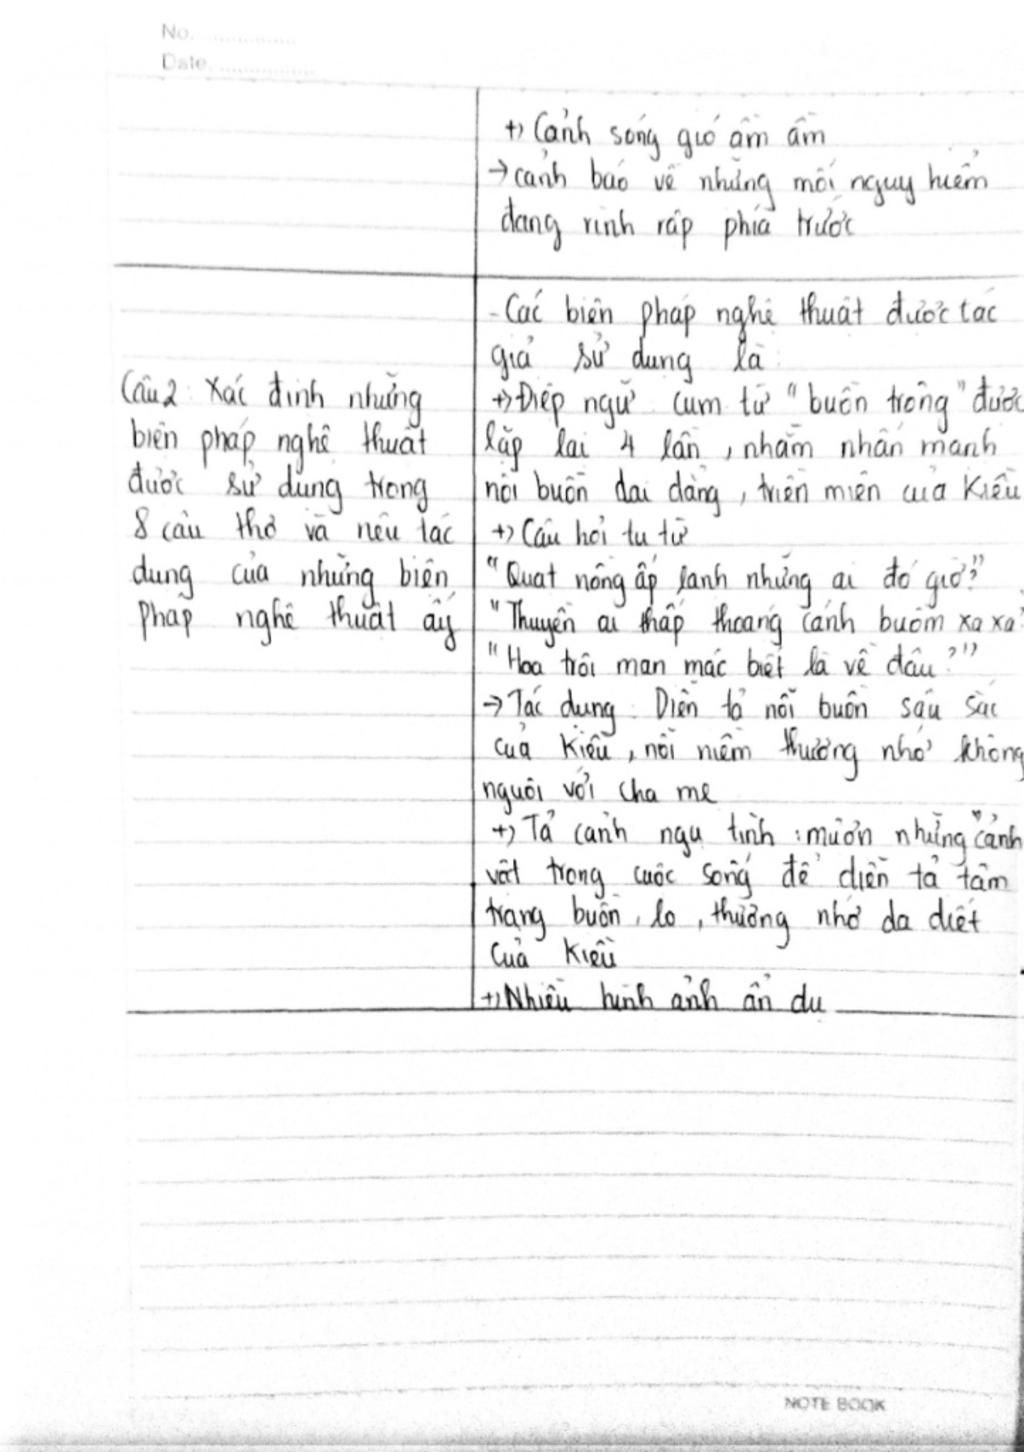 No. ................
Date. ................
+) Cảnh sóng gió ầm ầm
→ cảnh báo về những mối nguy hiểm
đang rình rập phía trước
Câu 2: Xác định những
biện pháp nghệ thuật
được sử dụng trong
8 câu thơ và nêu tác
dụng của những biện
pháp nghệ thuật ấy
- Các biện pháp nghệ thuật được tác
giả sử dụng là:
+) Điệp ngữ cụm từ "buồn trông" được
lặp lại 4 lần, nhằm nhấn mạnh
nỗi buồn dai dẳng, triền miên của Kiều
+) Câu hỏi tu từ
"Quạt nồng ấp lạnh những ai đó giờ?"
"Thuyền ai thấp thoáng cánh buồm xa xa?
"Hoa trôi man mác biết là về đâu?"
→ Tác dụng: Diễn tả nỗi buồn sâu sắc
của Kiều, nỗi niềm thương nhớ không
nguôi với cha mẹ
+) Tả cảnh ngụ tình: mượn những "cảnh
vật trong cuộc sống để diễn tả tâm
trạng buồn, lo, thương nhớ da diết
của Kiều
+) Nhiều hình ảnh ẩn dụ
NOTE BOOK